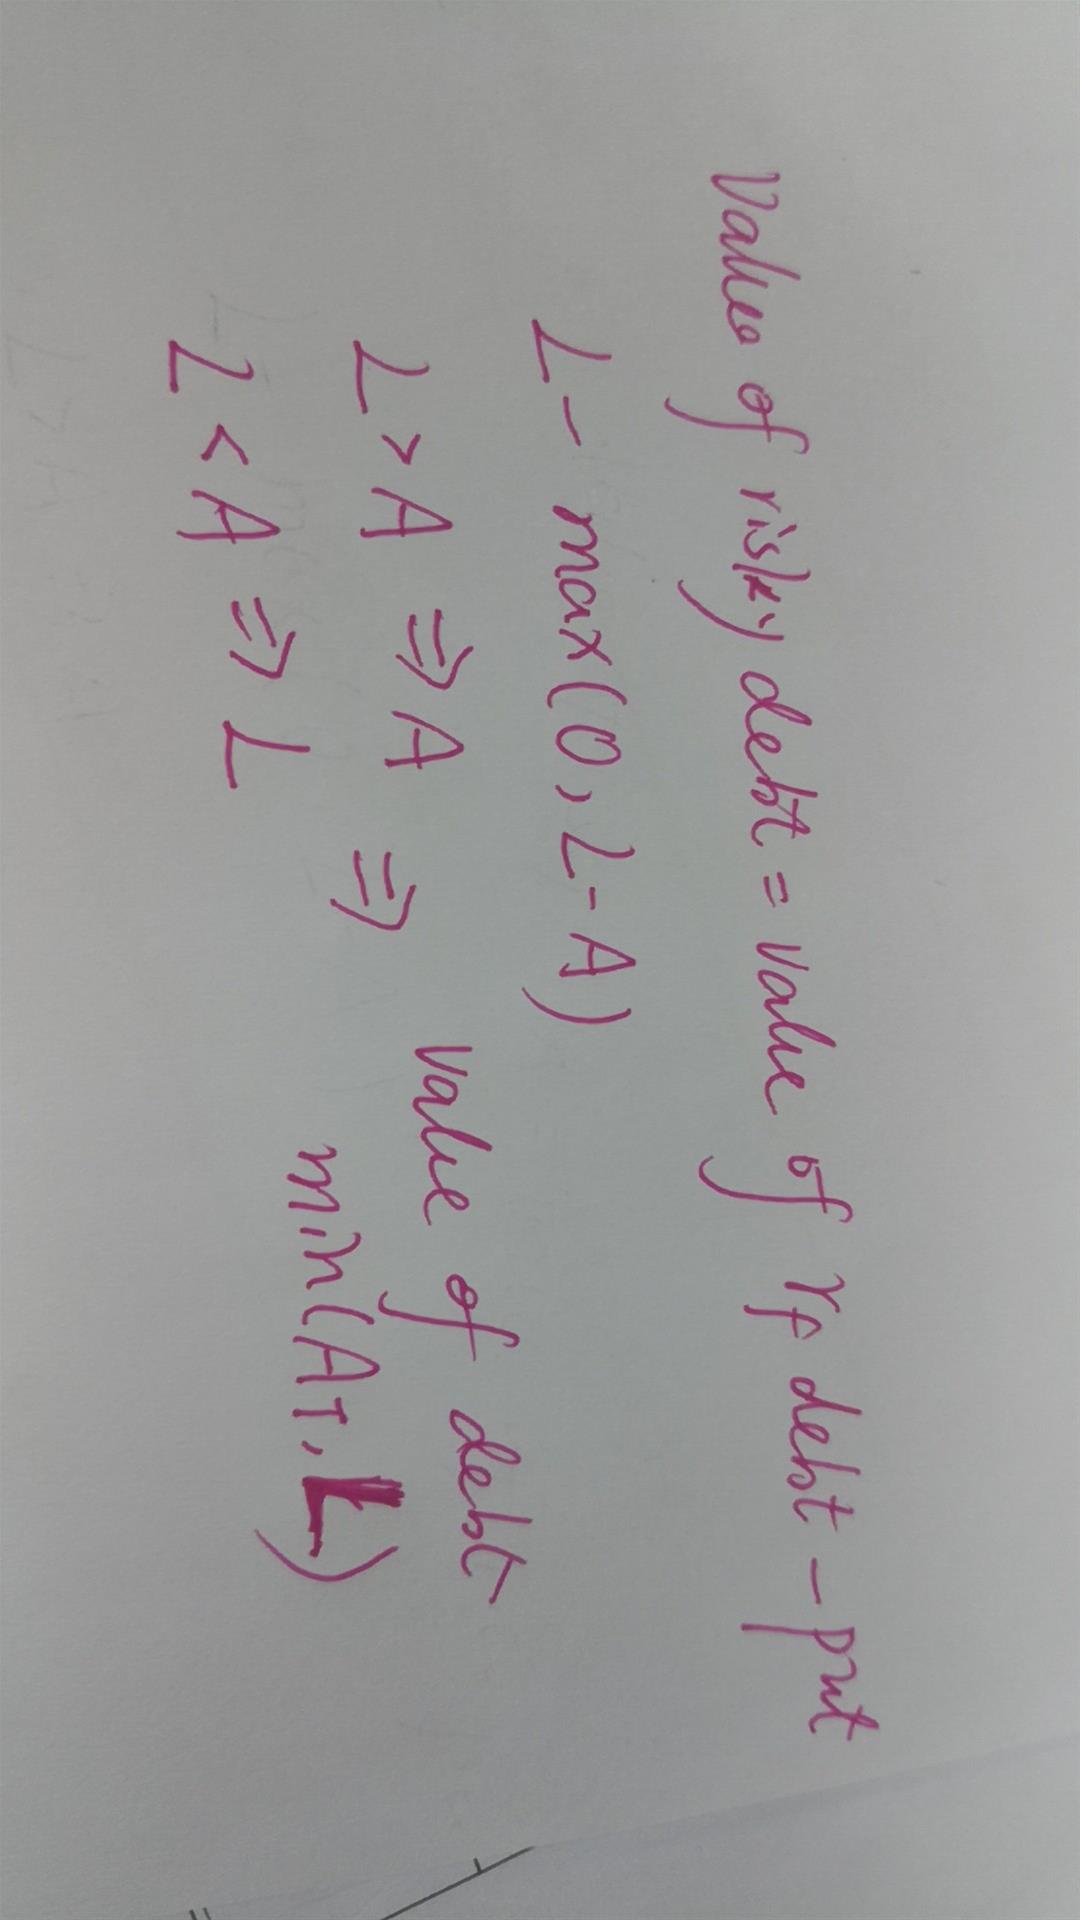 Value of risky debt = value of rf debt - put
L - max(0, L-A)
L > A ⇒ A ⇒ value of debt
L < A ⇒ L min(AT, L)